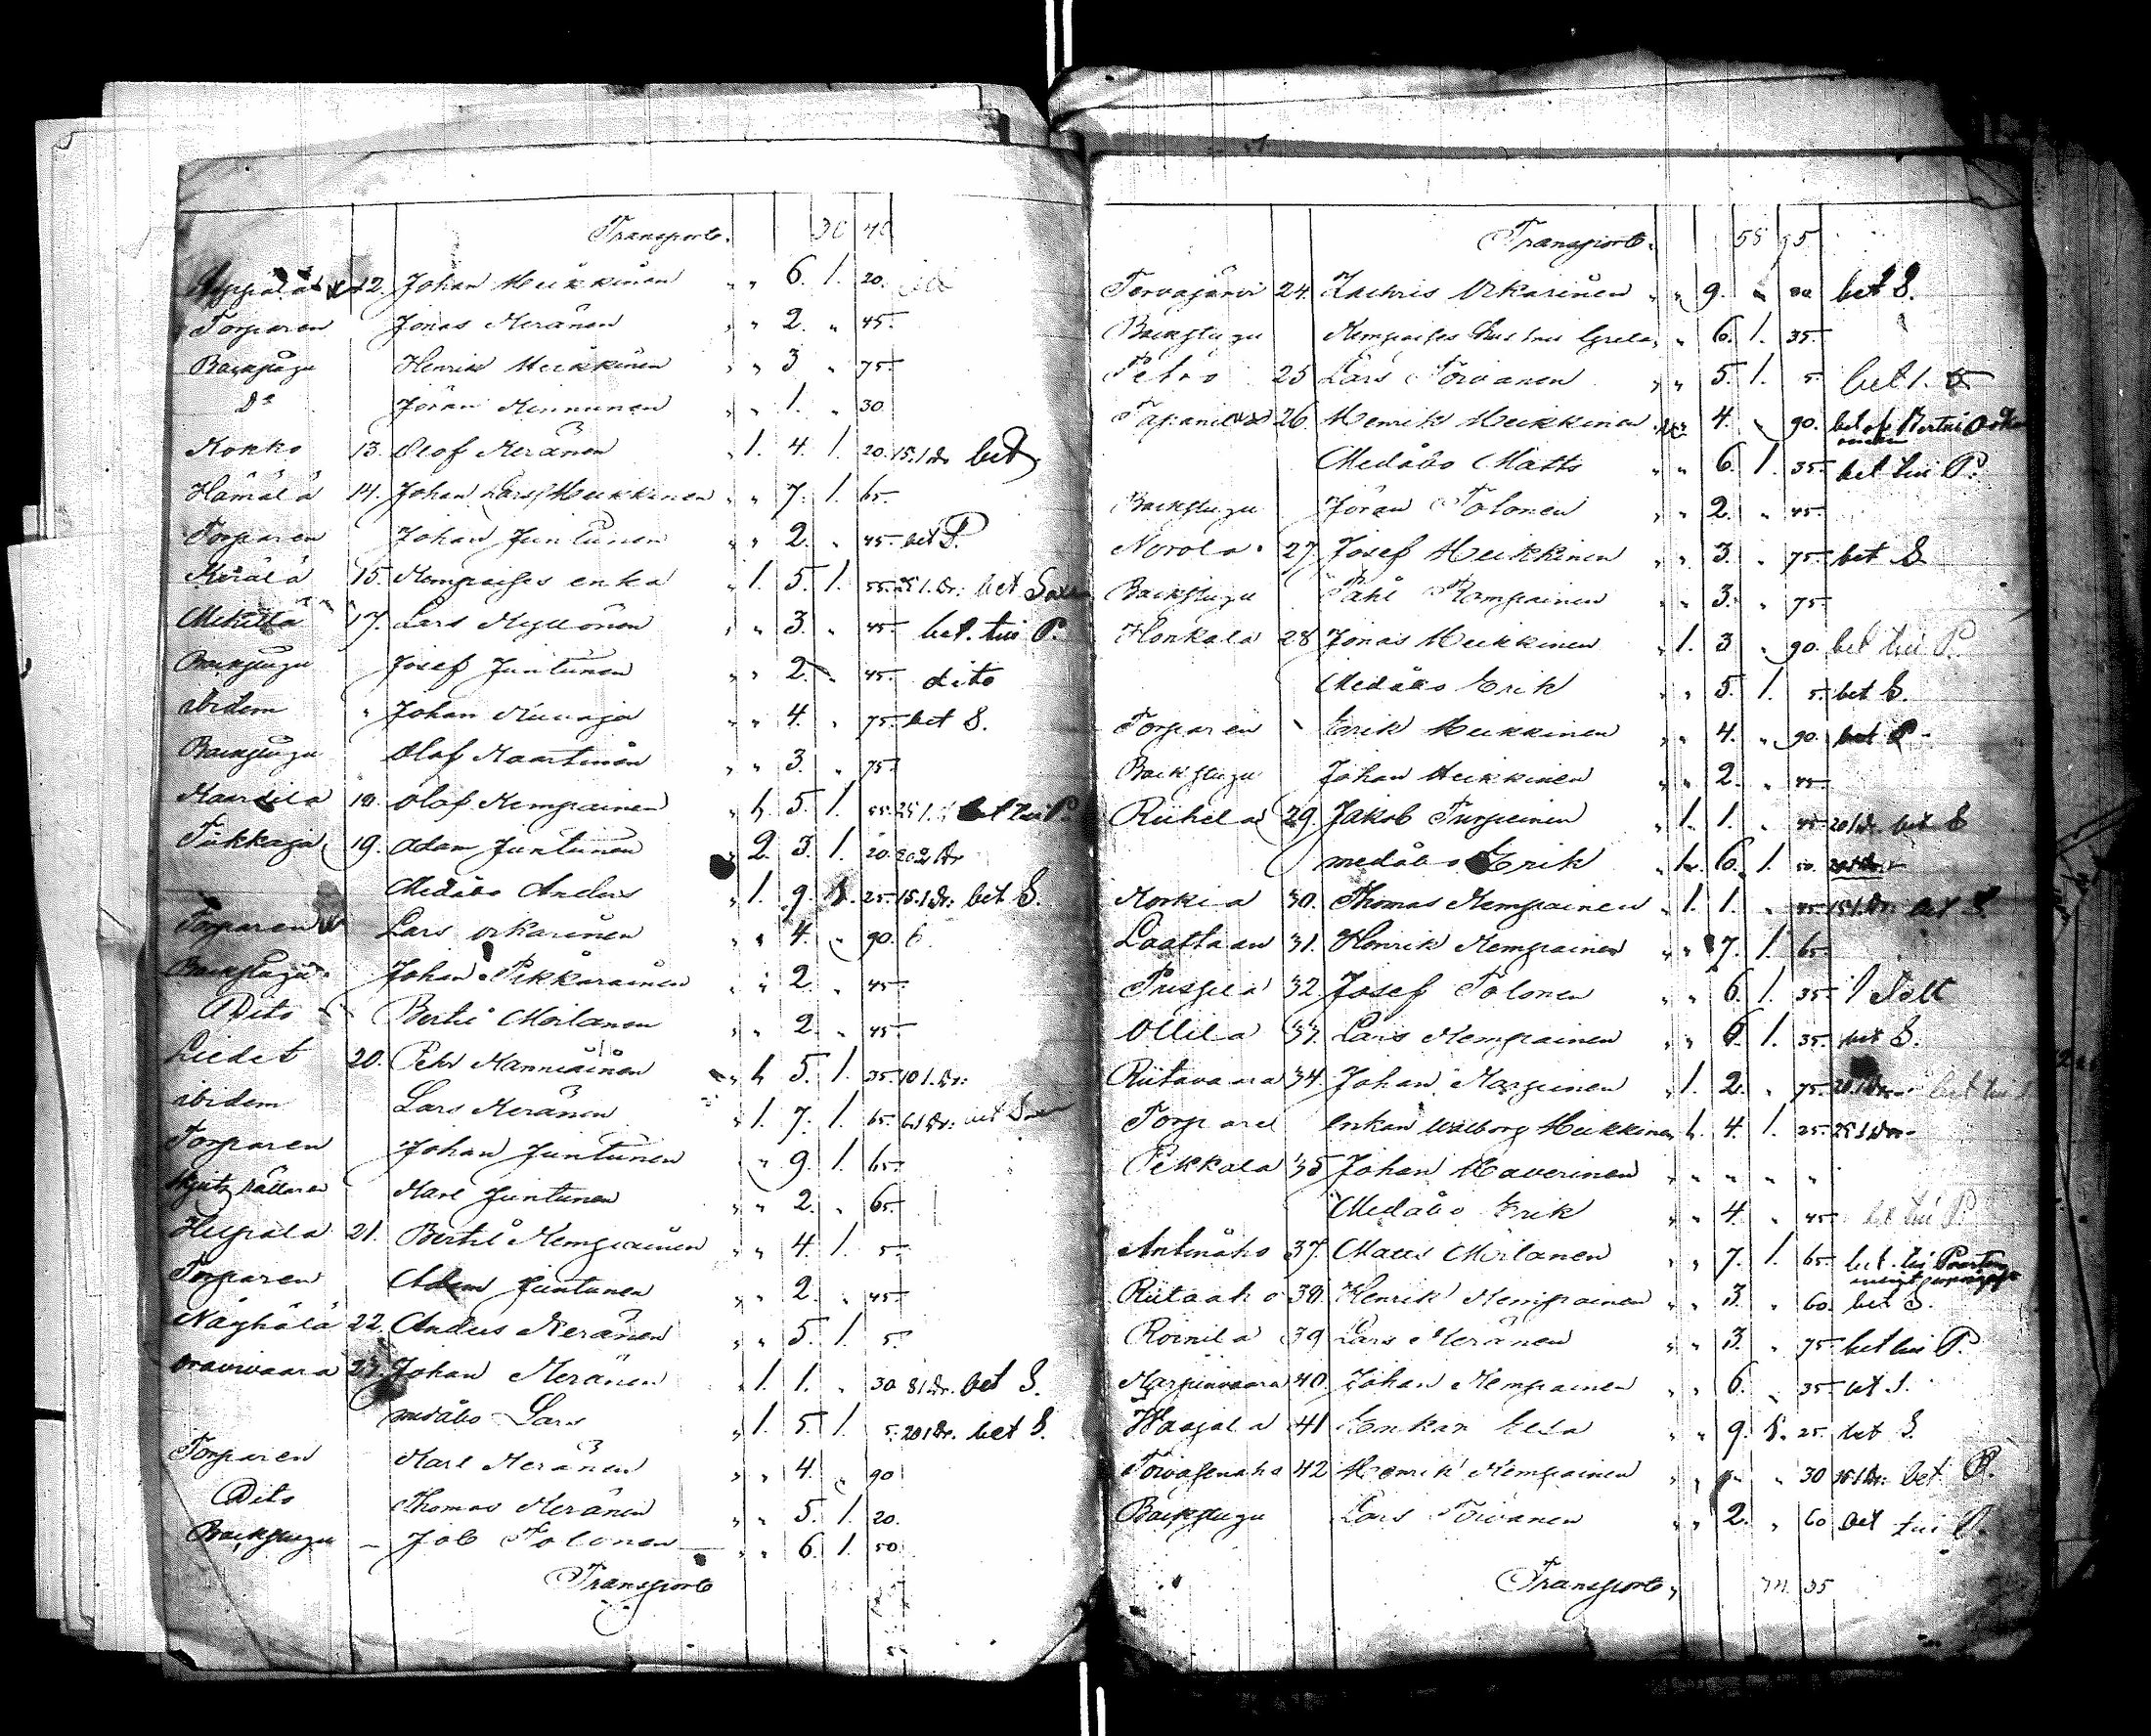 Transport. 30 40
12. Johan Heikkinen " " 6. 1. 20.
Torparen Jonas Keränen " " 2. " 45.
Backstugu Henrik Heikkinen " " 3 " 75.
Do Jöran Kinnunen " " 1. " 30
Kokko 13. Olof Keränen " 1. 4. 1. 20. 15. 1 Dr bet
Hämälä 14. Johan Larss. Heikkinen " " 7. 1. 65.
Torparen Johan Juntunen " " 2. " 45. bet P.
Kerälä 15. Kempaises enka " 1. 5. 1. 55. 25 1. Dr. bet
Mikitlä 17. Lars Kyllönen " " 3. " 45. bet. till P.
Backstugu Josef Juntunen " " 2. " 45. dito
ibidem " Johan " " 4. " 75. bet S.
Backstugu Olof Kaartinen " " 3. " 75.
Kaarlela 18. Olof Kempainen " 1. 5. 1. 55. 25 1. bet till P.
Tikkaja 19. Adam Juntunen " 2. 3. 1. 20. 20. 2 Dr
Medåbo Anders " 1. 9. 1. 25. 15. 1 Dr. bet S.
Torparen Lars Okarinen " " 4. " 90. 6.
Backstugu Johan Pikkarainen " " 2. " 45.
Dito Bertil Moilanen " " 2. " 45.
Liedet 20. Pehr Manniainen " 1. 5. 1. 35. 10 1. Dr.
ibidem Lars Keränen " 1. 7. 1. 65. 6. 1 Dr. bet
Torparen Johan Juntunen " " 9. 1. 65.
Skjutshållare Karl Juntunen " " 2. " 65.
Heipala 21. Bertil Kempainen " " 4. 1. 5.
Torparen Adam Juntunen " " 2. " 45.
Näyhölä 22. Anders Keränen " " 5. 1. 5.
Oravivaara 23. Johan Keränen " 1. 1. " 30. 8 1 Dr. bet S.
medåbo Lars " 1. 5. 1. 5. 20 1 Dr. bet S.
Torparen Karl Keränen " " 4. " 90
Dito Thomas Keränen " " 5. 1. 20.
Backstugu – Job Tolonen " " 6. 1. 50.
Transport
Transport. 58 95
Tervajärvi 24. Zachris Okarinen " " 9. " bet S.
Backstugu Kempaises hustru Greta " " 6. 1. 35.
Petrö 25 Lars Törvänen " " 5. 1. 5. bet 1. S
26. Henrik Heikkinen 4. " 90. bet af Bertil
Medåbo Matts " " 6. 1. 35. bet till P.
Backstugu Jöran Tolonen " " 2. " 45.
Norola 27. Josef Heikkinen " " 3. " 75. bet S
Backstugu Påhl Kempainen " " 3. " 75.
Honkala 28 Jonas Heikkinen " 1. 3 " 90. bet till P.
Medåbo Erik " " 5. 1. 5. bet S.
Torparen Erik Heikkinen " " 4. " 90. bet P
Backstugu Johan Heikkinen " " 2. " 45.
Riihelä 29. Jakob Turpeinen " 1. 1. " 45. 20 1 Dr. bet S
medåbo Erik " 1. 6. 1. 50.
Korkia 30. Thomas Kempainen " 1. 1. " 45. 15 1. Dr. bet S
Laattaan 31. Henrik Kempainen " " 7. 1. 65.
32. Josef Tolonen " " 6. 1. 35.
Ollila 33. Lars Kempainen " " 6. 1. 35. bet S.
Riitavaara 34. Johan Karppinen " 1. 2. " 75. 20 1 Dr. bet till
Torpare enkan Walborg Heikkinen 1. 4. 1. 25. 25 1 Dr.
Pekkala 35 Johan Haverinen " " " " "
Medåbo Erik " " 4. " 45. bet till P.
Antinaho 37. Matts Moilanen " " 7. 1. 65. bet. till
Riitaaho 38. Henrik Kempainen " " 3. " 60. bet S.
Roinila 39 Lars Keränen " " 3. " 75. bet till P.
Karppinvaara 40. Johan Kempainen " " 6. " 35. bet S.
Haajala 41 Enkan Elsa " " 9. 1. 25. bet S.
42 Henrik Kempainen " 30 bet P.
Backstugu Lars Törvänen " " 2. " 60 bet till P.
Transport, 74. 35